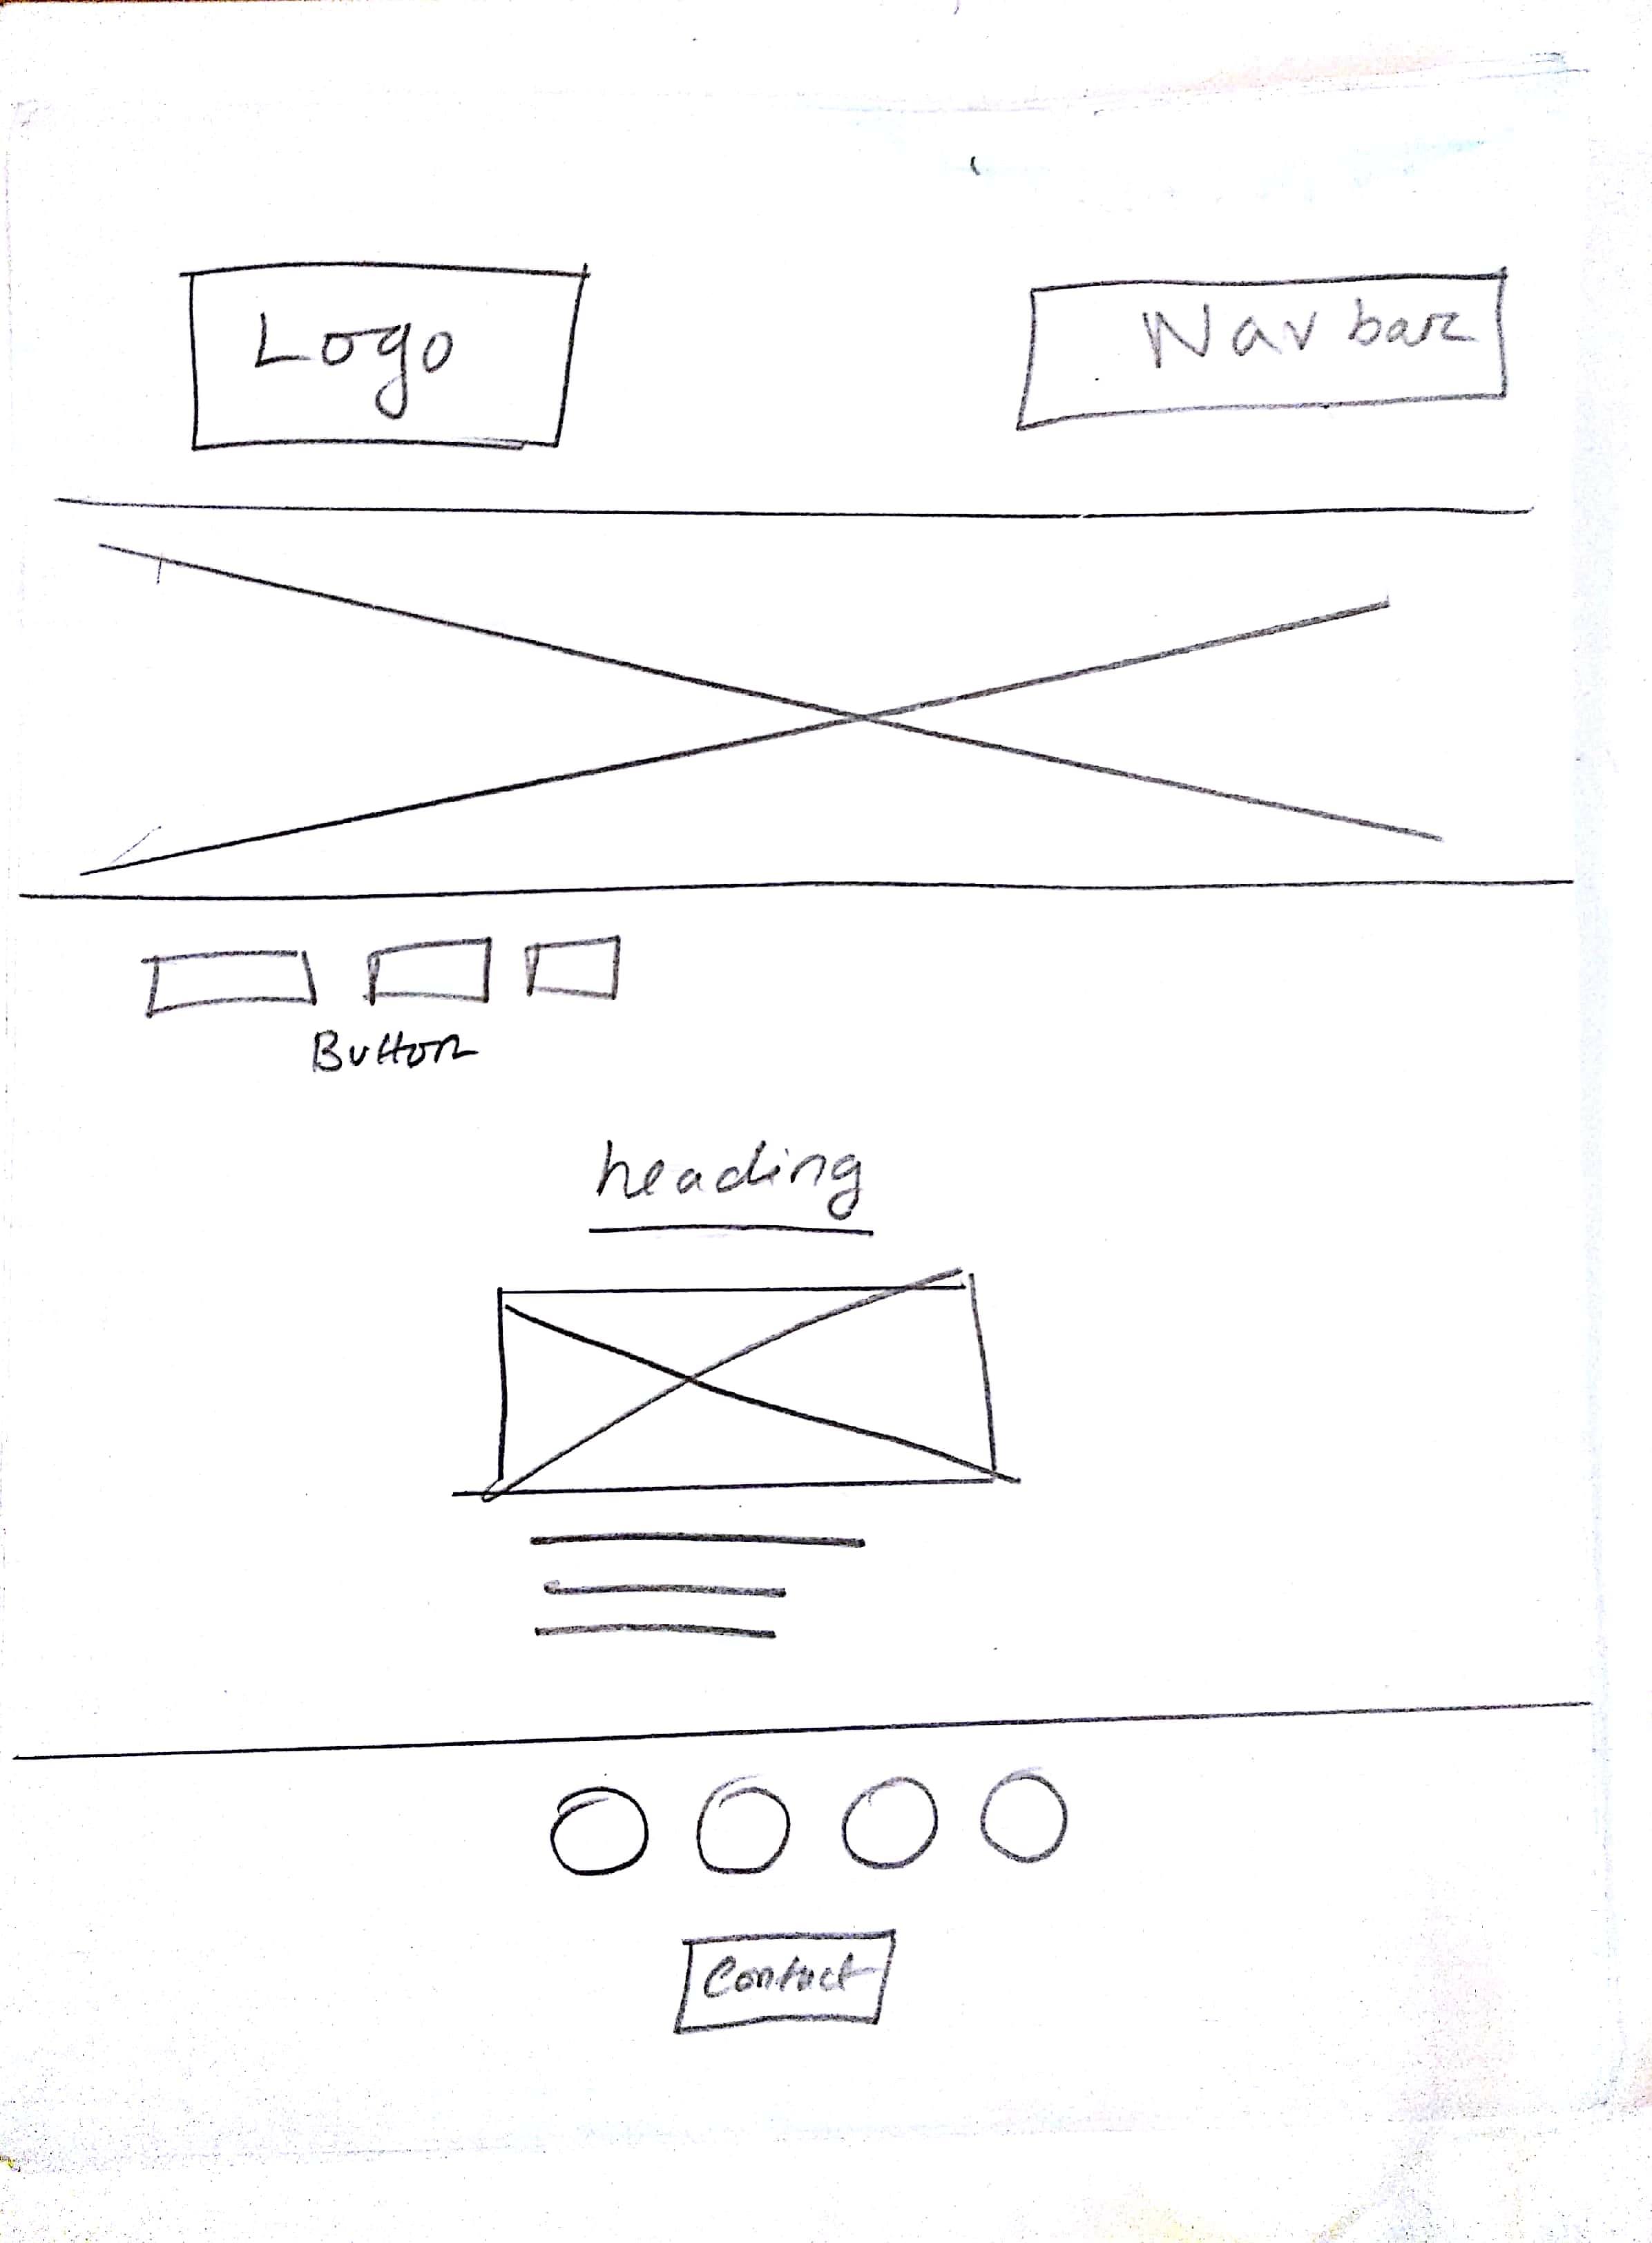 Logo
Navbar
Button
heading
Contact